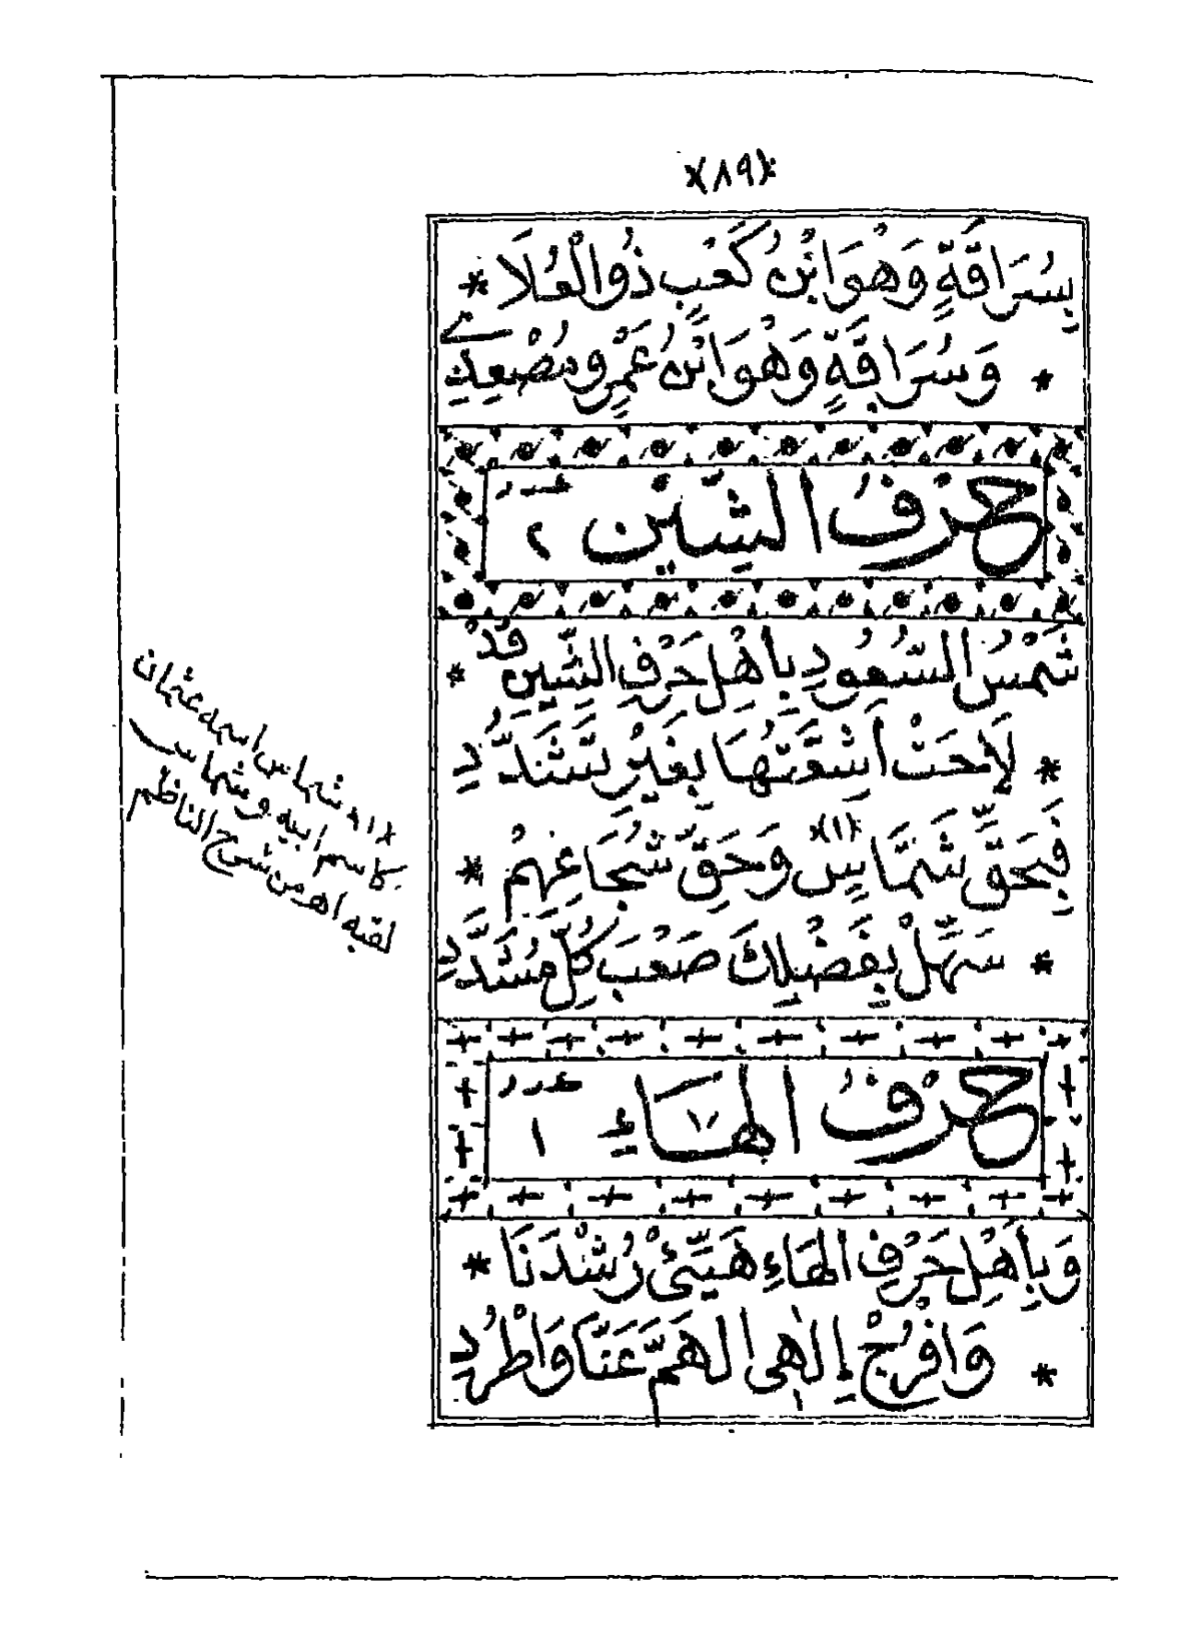 (٨٩)
بِسُرَاقَةٍ وَهُوَ ابْنُ كَعْبٍ ذُو الْعُلَا *
* وَسُرَاقَةٍ وَهُوَ ابْنُ عَمْرٍو
حَرْفُ الشِّيْنِ عدد ٢
شَمْسُ السُّعُودِ بِأَهْلِ حَرْفِ الشِّينِ قَدْ *
* لَاحَتْ أَشِعَّتُهَا بِغَيْرِ تَشَدُّدِ
فَبِحَقِّ شَمَّاسٍ (١) وَحَقِّ شُجَاعِهِمْ *
* سَهِّلْ بِفَضْلِكَ صَعْبَ كُلِّ مُشَدَّدِ
حَرْفُ الْهَاءِ ٧ عدد ١
وَبِأَهْلِ حَرْفِ الْهَاءِ هَيِّئْ رُشْدَنَا *
* وَافْرُجْ إِلٰهِى الْهَمَّ عَنَّا وَاطْرُدِ
(١) شماس اسمه عثمان
كاسم ابيه وشماس
لقبه اهـ من شرح الناظم